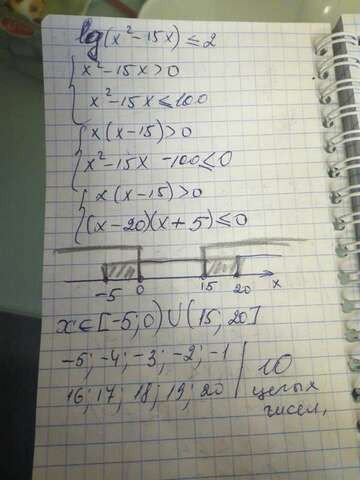 lg(x²-15x) ≤ 2
x²-15x>0
x²-15x ≤ 100
x(x-15)>0
x²-15x -100≤0
x(x-15)>0
(x-20)(x+5)≤0
-5 0 15 20 x
x∈[-5;0)∪(15;20]
-5; -4; -3; -2; -1
16; 17; 18; 19; 20
10
целых
чисел,